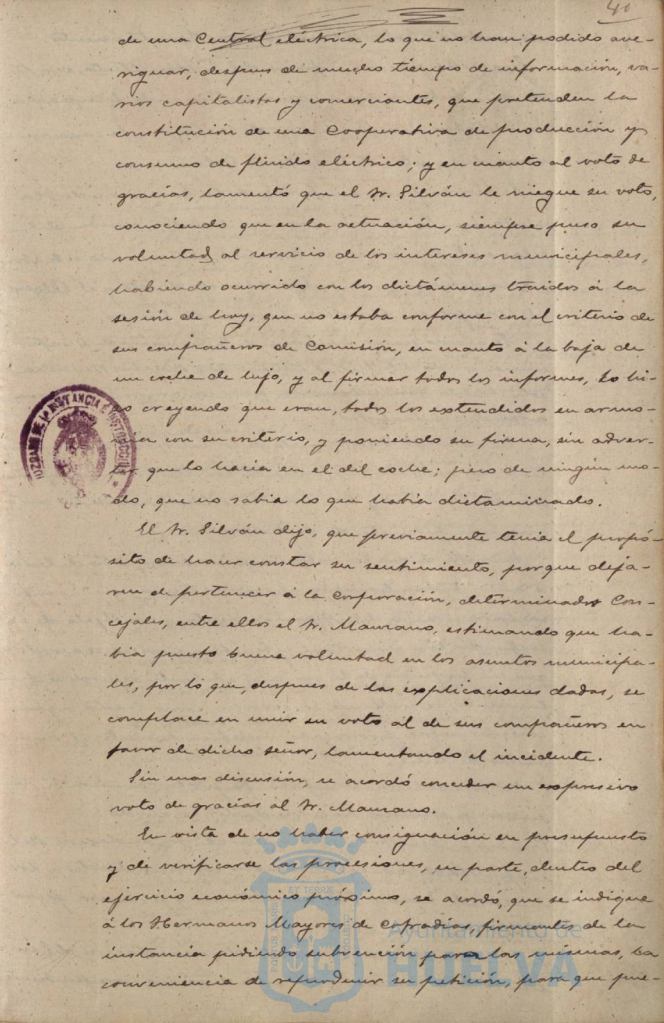 40
de una Central eléctrica, lo que no han podido ave-
riguar, despues de mucho tiempo de información, va-
rios capitalistas y comerciantes, que pretenden la
constitución de una Cooperativa de producción y
consumo de flúido eléctrico; y en cuanto al voto de
gracias, lamentó que el Sr. Silván le niegue su voto,
conociendo que en la actuación, siempre puso su
voluntad al servicio de los intereses municipales,
habiendo ocurrido con los dictámenes traidos á la
sesión de hoy, que no estaba conforme con el criterio de
sus compañeros de Comisión, en cuanto á la baja de
un coche de lujo, y al firmar todos los informes, lo hi-
zo creyendo que eran, todos los extendidos en armo-
nia con su criterio, y poniendo su firma, sin adver-
tir que lo hacia en el del coche; pero de ningún mo-
do, que no sabia lo que habia dictaminado.
El Sr. Silván dijo, que previamente tenia el propó-
sito de hacer constar su sentimiento, porque deja-
ren de pertenecer á la Corporación, determinados Con-
cejales, entre ellos el Sr. Manzano, estimando que ha-
bia puesto buena voluntad en los asuntos municipa-
les, por lo que, despues de las explicaciones dadas, se
complace en unir su voto al de sus compañeros en
favor de dicho señor, lamentando el incidente.
Sin mas discusión, se acordó conceder un expresivo
voto de gracias al Sr. Manzano.
En vista de no haber consignación en presupuesto
y de verificarse las procesiones, en parte, dentro del
ejercicio económico próximo, se acordó, que se indique
á los Hermanos Mayores de Cofradías, firmantes de la
instancia pidiendo subvención para las mismas, la
conveniencia de reproducir su petición, para que pue-
JUZGADO DE 1ª INSTANCIA E INSTRUCCION
Ayuntamiento de
HUELVA